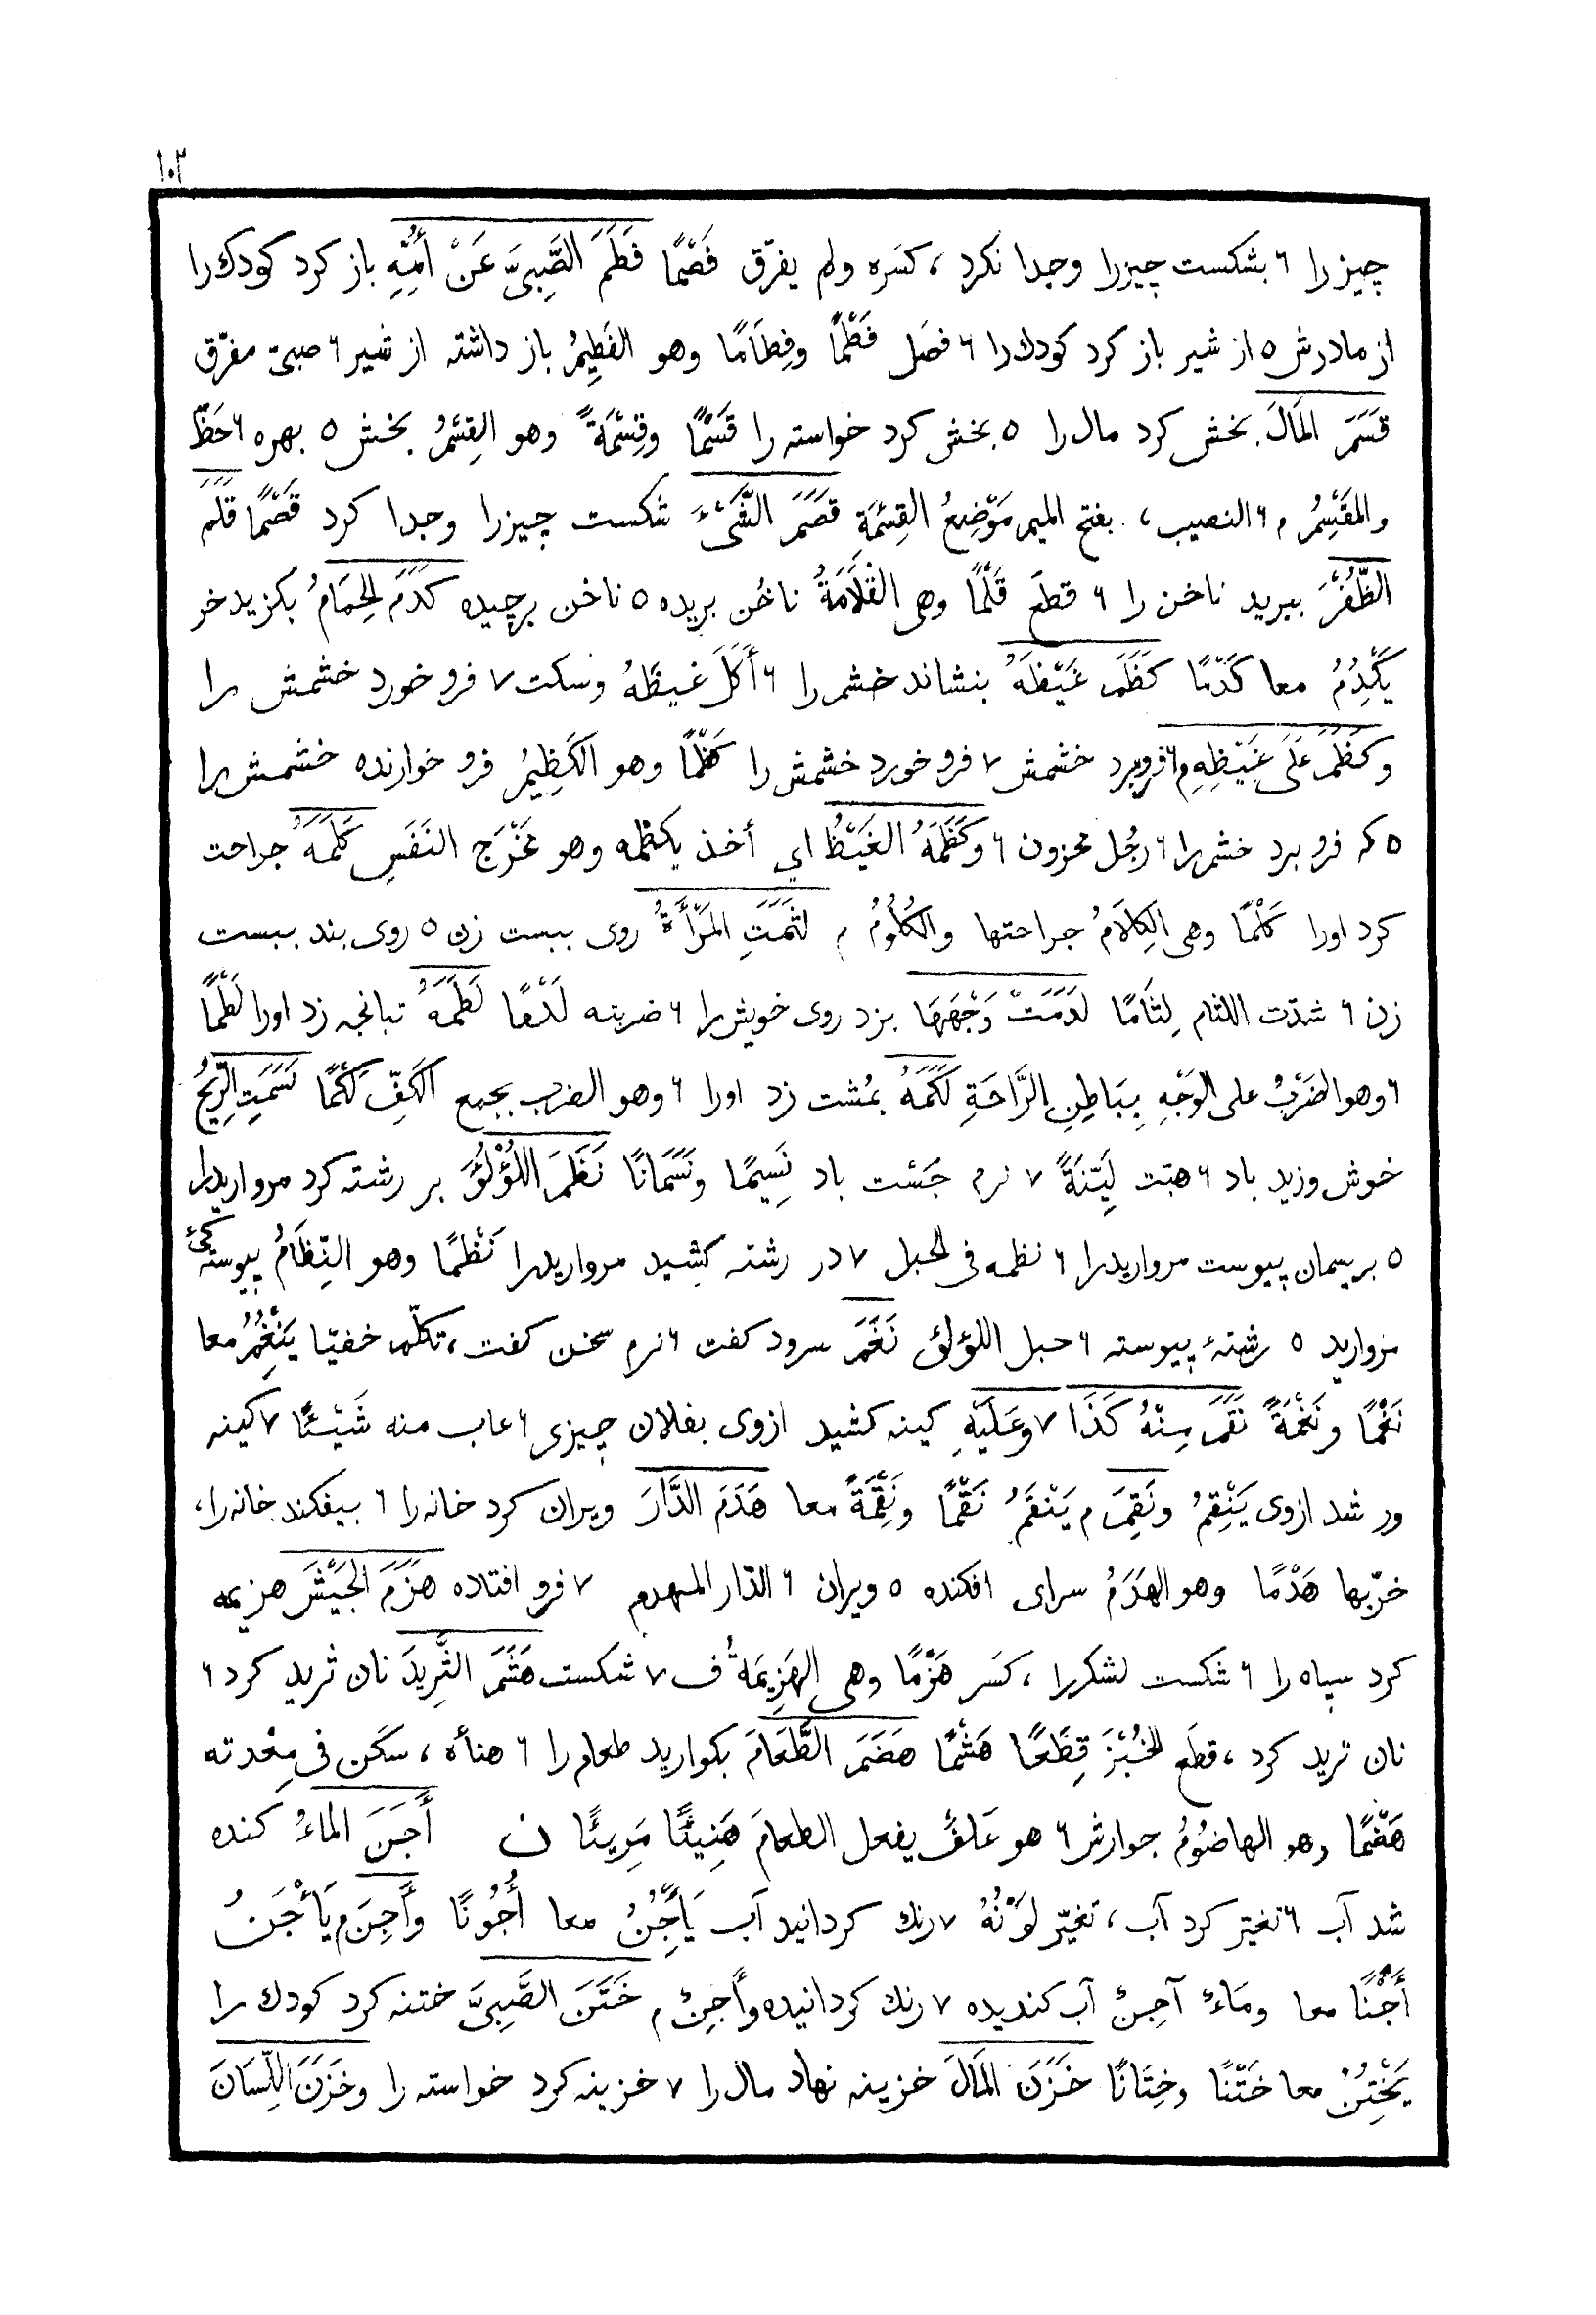 ١٠٣
چیز را ٦ بشکست چیزرا وجدا نکرد ، کسَره ولم یفرّق فَصْمًا فَطَمَ الصَّبِیَّ عَنْ أُمِّهِ باز کرد کودك را
از مادرش ٥ از شیر باز کرد کودك را ٦ فصَل فَطْمًا وفِطَامًا وهو الفَطِیمُ باز داشته از شیر ٦ صبیّ مفرّق
قَسَمَ المَالَ بخش کرد مال را ٥ بخش کرد خواسته را قَسْمًا وقِسْمَةً وهو القِسْمُ بخش ٥ بهره ٦ حَظّ
والمَقْسِمُ م ٦ النصیب ، بفتح المیم مَوْضِعُ القِسْمَةِ قَصَمَ الشَّیْءَ شکست چیزرا وجدا کرد قَصْمًا قَلَمَ
الظُّفْرَ ببرید ناخن را ٦ قطَعَ قَلْمًا وهی القُلَامَةُ ناخُن بریده ٥ ناخن برچیده کَدَمَ الحِمَارُ بکزید خر
یَکْدِمُ معا کَدْمًا کَظَمَ غَیْظَهُ بنشاند خشم را ٦ أَکَلَ غیظَهُ وسکت ٧ فرو خورد خشمش را
وکَظَمَ عَلَی غَیْظِهِ م ٦ فروبرد خشمش ٧ فرو خورد خشمش را کَظْمًا وهو الکَظِیمُ فرو خوارنده خشمش را
٥ که فرو برد خشم را ٦ رجُل محزون ٦ وکَظَمَهُ الغَیْظُ اي أخذ بکظمه وهو مَخْرَج النَفَسِ کَلَمَهُ جراحت
کرد اورا کَلْمًا وهی الکِلَامُ جراحتها والکُلُومُ م لثَمَتِ المَرْأَةُ روی ببست زن ٥ روی بند ببست
زن ٦ شدّت اللثام لِثَامًا لَدَمَتْ وَجْهَهَا بزد روی خویش را ٦ ضربته لَدْمًا لَطَمَهُ تبانجه زد اورا لَطْمًا
٦ وهو الضَرْبُ علی الوَجْهِ بِبَاطِنِ الرَّاحَةِ لَکَمَهُ بمُشت زد اورا ٦ وهو الضرب بجمع الکَفّ لَکْمًا نَسَمَتِ الرِّیحُ
خوش وزید باد ٦ هبّت لَیِّنَةً ٧ نرم جَسْت باد نَسِیمًا ونَسَمَانًا نَظَمَ اللؤْلُؤَ بر رشته کرد مرواریدرا
٥ بریسمان پیوست مرواریدرا ٦ نظمه فی الحبل ٧ در رشته کشید مرواریدرا نَظْمًا وهو النِّظَامُ پیوستکئ
مروارید ٥ رشتهٔ پیوسته ٦ حبل اللؤلؤ نَغَمَ سرود کفت ٦ نرم سخن کفت ، تکلّم خفیّا یَنْغِمُ معا
نَغْمًا ونَغْمَةً نَقَمَ مِنْهُ کَذَا ٧ وعَلَیْهِ کینه کشید ازوی بفلان چیزی ٦ عاب منه شَیْئًا ٧ کینه
ور شد ازوی یَنْقِمُ ونَقِمَ م یَنْقَمُ نَقْمًا ونِقْمَةً معا هَدَمَ الدَّارَ ویران کرد خانه را ٦ بیفکند خانه را ،
خرّبها هَدْمًا وهو الهَدَمُ سرای افکنده ٥ ویران ٦ الدّار المنهدم ٧ فرو افتاده هَزَمَ الجَیْشَ هزیمه
کرد سپاه را ٦ شکست لشکررا ، کسَر هَزْمًا وهی الهَزِیمَةُ ف ٧ شکست هَشَمَ الثَّرِیدَ نان ثرید کرد ٦
نان ترید کرد ، قطَع الخُبْزَ قِطَعًا هَشْمًا هَضَمَ الطَّعَامَ بکوارید طعام را ٦ هنأه ، سکَن فی مِعْدته
هَضْمًا وهو الهاضُومُ جوارش ٦ هو عَلفٌ یفعل الطعامَ هَنِیئًا مَرِیئًا ن أَجَنَ المَاءُ کنده
شد آب ٦ تغیّر کرد آب ، تغیّر لوْنُهُ ٧ رنك کردانید آب یَأْجِنُ معا أُجُونًا وأَجِنَ م یَأْجَنُ
أَجْنًا معا ومَاءٌ آجِنٌ آب کندیده ٧ رنك کردانیده وأَجِنٌ م خَتَنَ الصَّبِیَّ ختنه کرد کودك را
یَخْتِنُ معا خَتْنًا وخِتَانًا خَزَنَ المَالَ خزینه نهاد مال را ٧ خزینه کرد خواسته را وخَزَنَ اللِّسَانَ